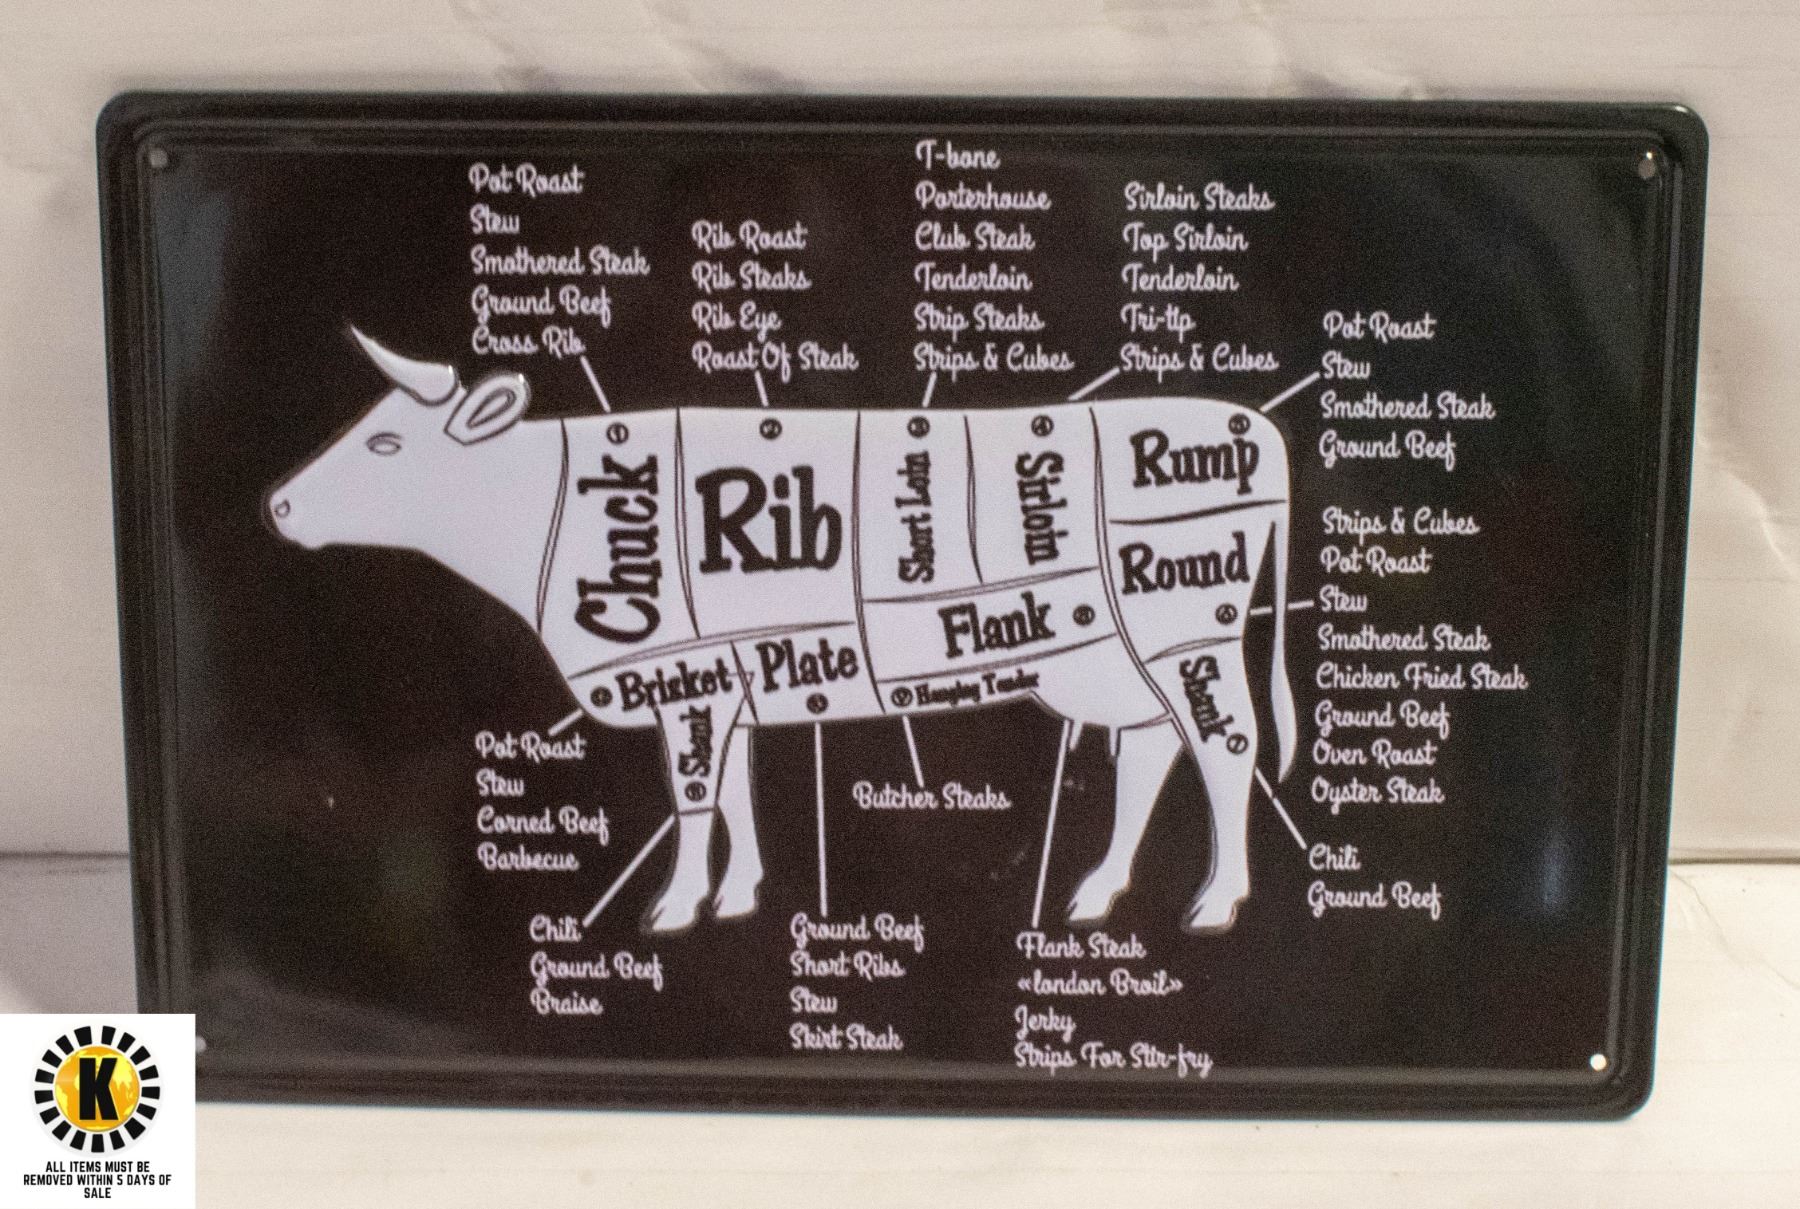 Pot Roast
Stew
Smothered Steak
Ground Beef
Cross Rib
Rib Roast
Rib Steaks
Rib Eye
Roast Of Steak
T-bone
Porterhouse
Club Steak
Tenderloin
Strip Steaks
Strips & Cubes
Sirloin Steaks
Top Sirloin
Tenderloin
Tri-tip
Strips & Cubes
Pot Roast
Stew
Smothered Steak
Ground Beef
Strips & Cubes
Pot Roast
Stew
Smothered Steak
Chicken Fried Steak
Ground Beef
Oven Roast
Oyster Steak
Chili
Ground Beef
1
Chuck
2
Rib
3
Short Loin
4
Sirloin
Rump
Round
Flank
Brisket
Plate
Hanging Tender
Shank
Shank
7
Pot Roast
Stew
Corned Beef
Barbecue
Butcher Steaks
Chili
Ground Beef
Braise
Ground Beef
Short Ribs
Stew
Skirt Steak
Flank Steak
«london Broil»
Jerky
Strips For Stir-fry
K
ALL ITEMS MUST BE
REMOVED WITHIN 5 DAYS OF
SALE